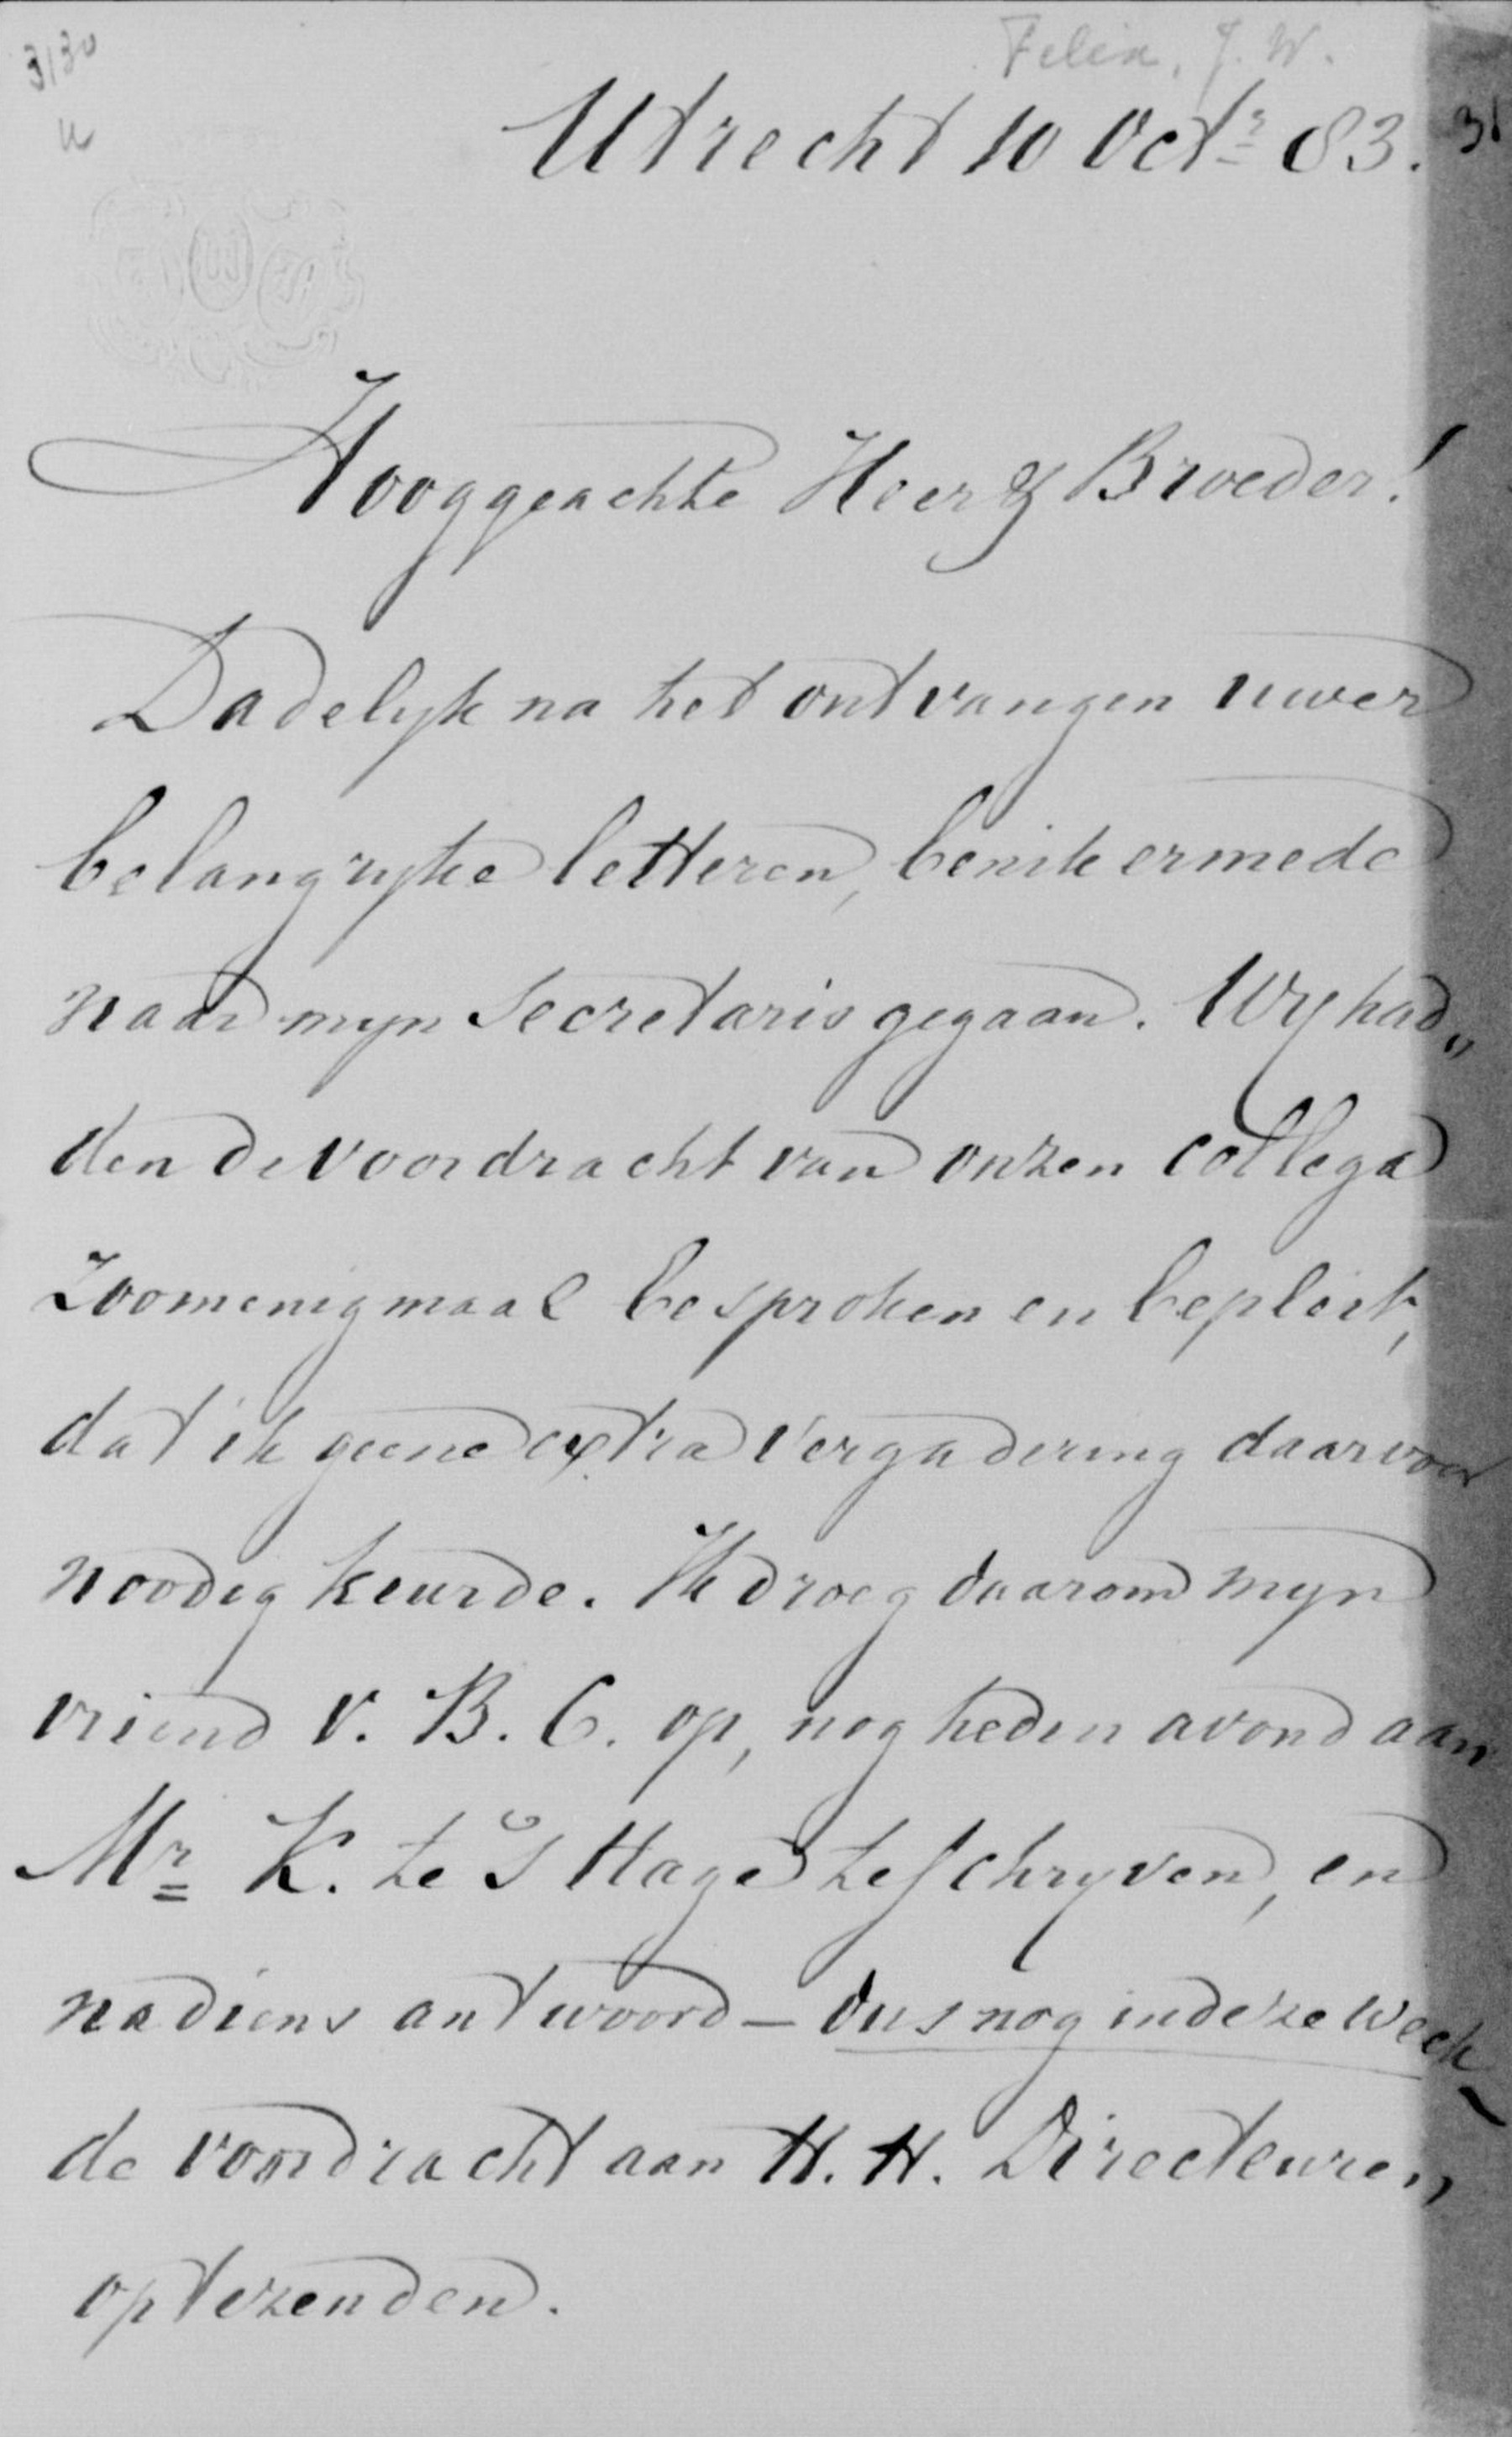 3130
Felix, J. W.
Utrecht 10 Octr 83.
Hooggeachte Heer & Broeder!
Dadelyk na het ontvangen uwer
belangryke letteren, ben ik ermede
naar myn secretaris gegaan. Wy had„
den de voordracht van onzen collega
zoomenigmaal besproken en bepleit,
dat ik geene extra vergadering daarvoor
noodig keurde. Ik droeg daarom myn
vriend v. B. C. op, nog heden avond aan
Mr K. te 's Hage te schryven, en
na diens antwoord – dus nog in deze week –
de voordracht aan H. H. Directeuren
op te zenden.